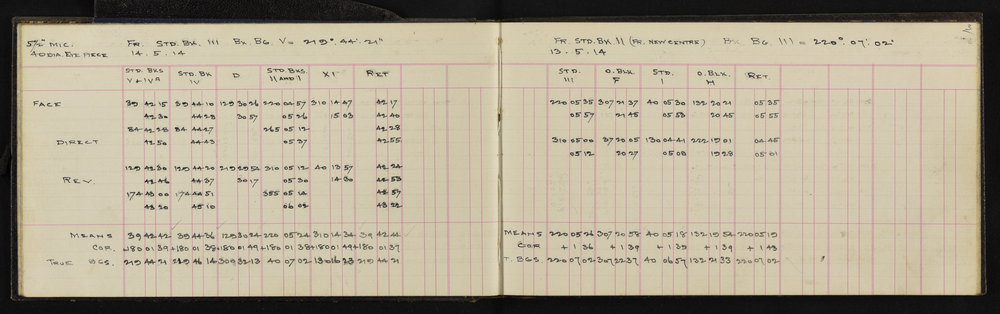 5½" MIC. FR. STD. BK. III BK. BG. V = 219°. 44'. 21"
40 DIA. EYE PIECE 14. 5. 14
STD. BKS V + IVA STD. BK IV D STD. BKS. II AND I XI RET
FACE 39 42 15 39 44 10 129 30 26 220 04 57 310 14 47 42 17
42 30 44 23 30 57 05 26 15 03 42 40
84 42 28 84 44 27 265 05 12 42 28
DIRECT 42 50 44 43 05 37 42 55
REV. 129 42 30 129 44 20 219 29 54 310 05 12 40 13 57 42 24
42 46 44 37 30 17 05 30 14 30 42 53
174 43 00 174 44 51 355 05 14 42 57
43 20 45 10 06 02 43 22
MEANS 39 42 42 39 44 36 129 30 24 220 05 24 310 14 34 39 42 44
COR. +180 01 39 +180 01 38 +180 01 49 +180 01 38 +180 01 49 +180 01 37
TRUE BGS. 219 44 21 219 46 14 309 32 13 40 07 02 130 16 23 219 44 21
FR. STD. BK II (FR. NEW CENTRE) BK BG. III = 220°. 07'. 02"
13. 5. 14
STD. III O. BLK. F STD. I O. BLK. H RET.
220 05 35 307 21 37 40 05 30 132 20 21 05 35
05 57 21 45 05 53 20 45 05 55
310 05 00 37 20 05 130 04 41 222 19 01 04 45
05 12 20 27 05 08 19 28 05 01
MEANS 220 05 26 307 20 58 40 05 18 132 19 54 220 05 19
COR + 1 36 + 1 39 + 1 39 + 1 39 + 1 43
T. BGS. 220 07 02 307 22 37 40 06 57 132 21 33 220 07 02